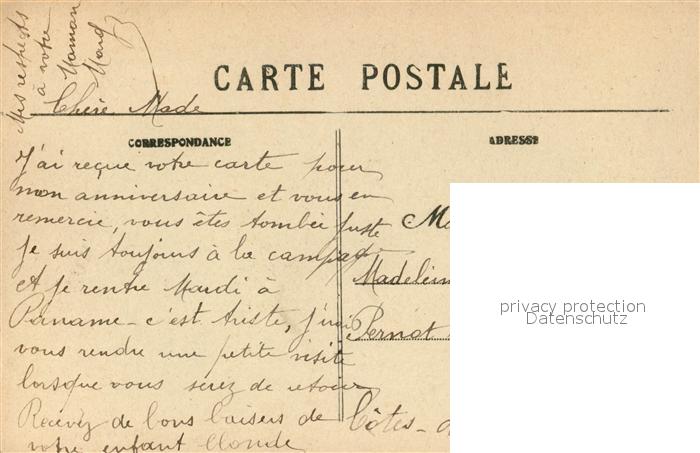 Mes respects
à votre
Maman
CARTE POSTALE
Chère Made
CORRESPONDANCE
ADRESSE
J'ai reçue votre carte pour
mon anniversaire et vous en
remercie, vous êtes tombée juste
Je suis toujours à la campag
et je rentre Mardi à
Paname - c'est triste, j'irai
vous rendre une petite visite
lorsque vous serez de retour
Recevez de bons baisers de
votre enfant blonde
M
Madelein
Pernot
Côtes-
privacy protection
Datenschutz